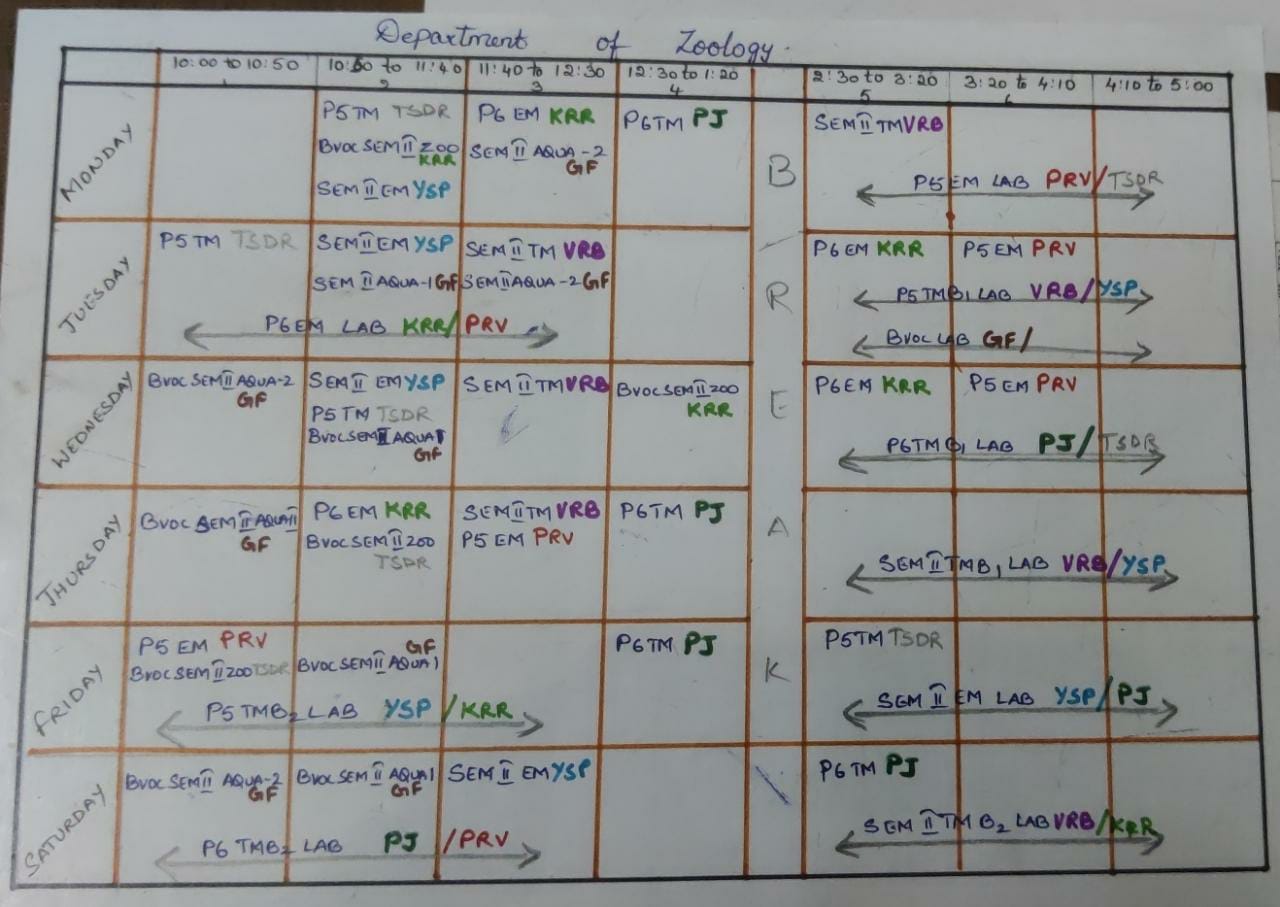 Department of Zoology.
10:00 to 10:50 10:50 to 11:40 11:40 to 12:30 12:30 to 1:20 2:30 to 3:20 3:20 to 4:10 4:10 to 5:00
1 2 3 4 5 6
BREAK
MONDAY
P5 TM TSDR P6 EM KRR P6TM PJ SEM II TM VRB
BVOC SEM II ZOO KRR SEM II AQUA-2 GF
SEM II EM YSP P5 EM LAB PRV/TSDR
TUESDAY
P5 TM TSDR SEM II EM YSP SEM II TM VRB P6 EM KRR P5 EM PRV
SEM II AQUA-1 GF SEM II AQUA-2 GF P5 TMB1 LAB VRB/YSP
P6 EM LAB KRR/PRV BVOC LAB GF/
WEDNESDAY
BVOC SEM II AQUA-2 GF SEM II EM YSP SEM II TM VRB BVOC SEM II ZOO KRR P6 EM KRR P5 EM PRV
P5 TM TSDR
BVOC SEM II AQUA 1 GF P6TMB1 LAB PJ/TSDR
THURSDAY
BVOC SEM II AQUA II GF P6 EM KRR SEM II TM VRB P6TM PJ
BVOC SEM II ZOO TSDR P5 EM PRV
SEM II TMB1 LAB VRB/YSP
FRIDAY
P5 EM PRV BVOC SEM II AQUA 1 GF P6TM PJ P5TM TSDR
BVOC SEM II ZOO TSDR
P5 TMB2 LAB YSP/KRR SEM II EM LAB YSP/PJ
SATURDAY
BVOC SEM II AQUA-2 GF BVOC SEM II AQUA 1 GF SEM II EM YSP P6 TM PJ
P6 TMB2 LAB PJ/PRV SEM II TM B2 LAB VRB/KRR